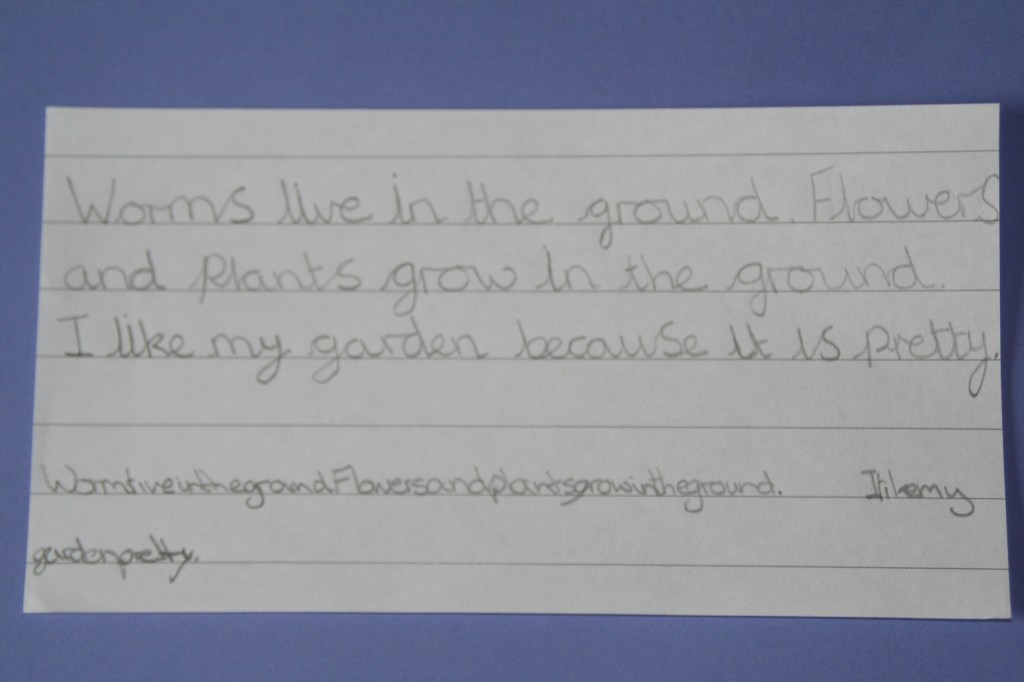 Worms live in the ground. Flowers
and plants grow in the ground.
I like my garden because it is pretty.
WormsliveinthegroundFlowersandplantsgrowintheground. Ilikemy
gardenpretty.